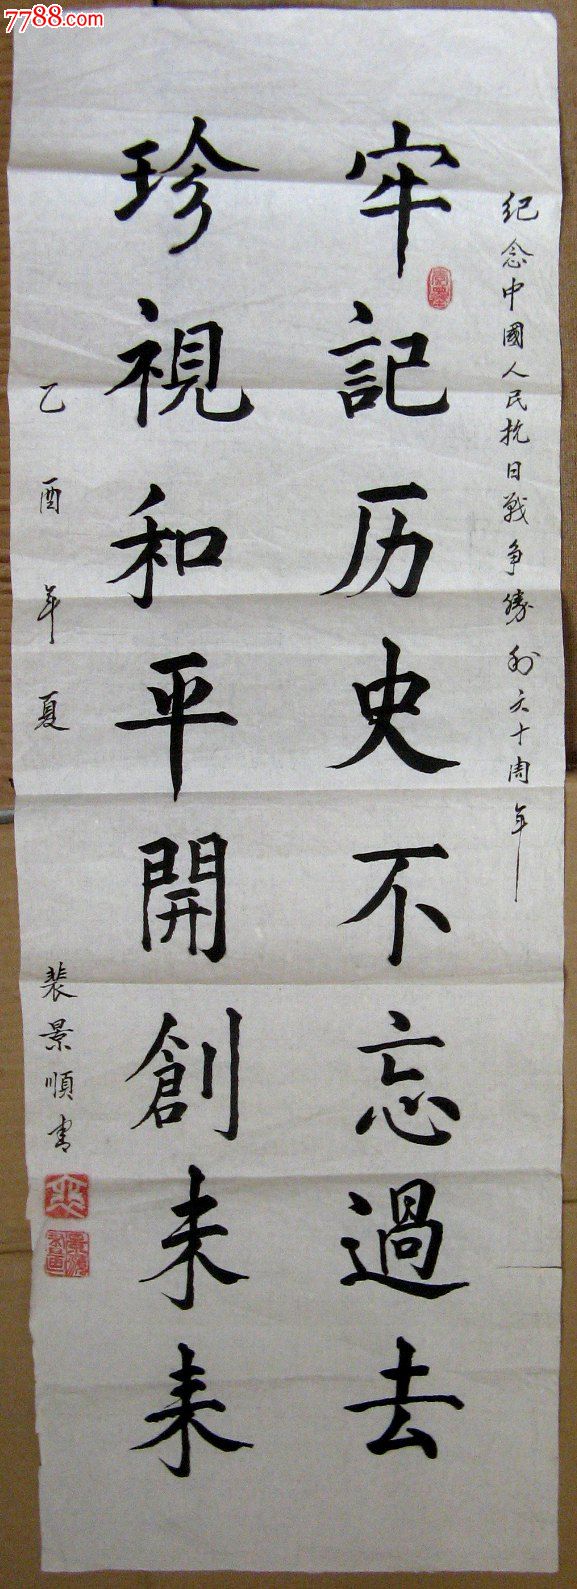 7788.com
纪念中國人民抗日戰争勝利六十周年
牢記历史不忘過去
珍視和平開創未来
乙酉年夏
裴景順書